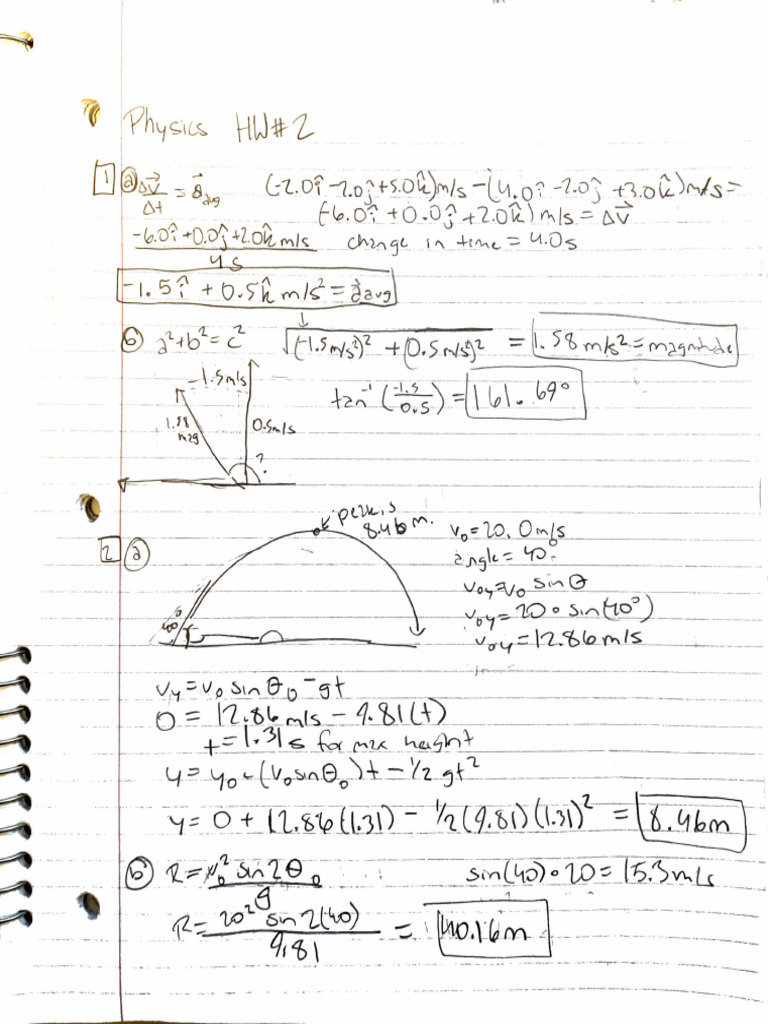 Physics HW#2
1 a ΔV⃗/Δt = a⃗avg (-2.0î -2.0ĵ+5.0k̂)m/s -(4.0î -2.0ĵ +3.0k̂)m/s=
(-6.0î +0.0ĵ +2.0k̂) m/s = ΔV⃗
-6.0î+0.0ĵ+2.0k̂ m/s / 4s change in time = 4.0s
-1.5î + 0.5k̂ m/s² = a⃗avg
b a²+b²=c² √(-1.5m/s²)² +(0.5m/s)² = 1.58 m/s²=magnitude
-1.5m/s
tan⁻¹(-1.5/0.5) = 161.69°
1.58 mag
0.5m/s
?
2 a
peak, s
8.46 m.
v₀=20.0m/s
angle=40°
v₀y=v₀ sinθ
40°
v₀y=20∘sin(40°)
v₀y=12.86m/s
vy=v₀sinθ₀-gt
0 = 12.86m/s - 9.81(t)
t=1.31s for max height
y = y₀-(v₀sinθ₀)t - 1/2 gt²
y= 0 + 12.86(1.31) - 1/2(9.81)(1.31)² = 8.46m
b R= v₀² sin2θ₀ / g sin(40)∘20=15.3m/s
R= 20² sin 2(40) / 9.81 = 40.16m